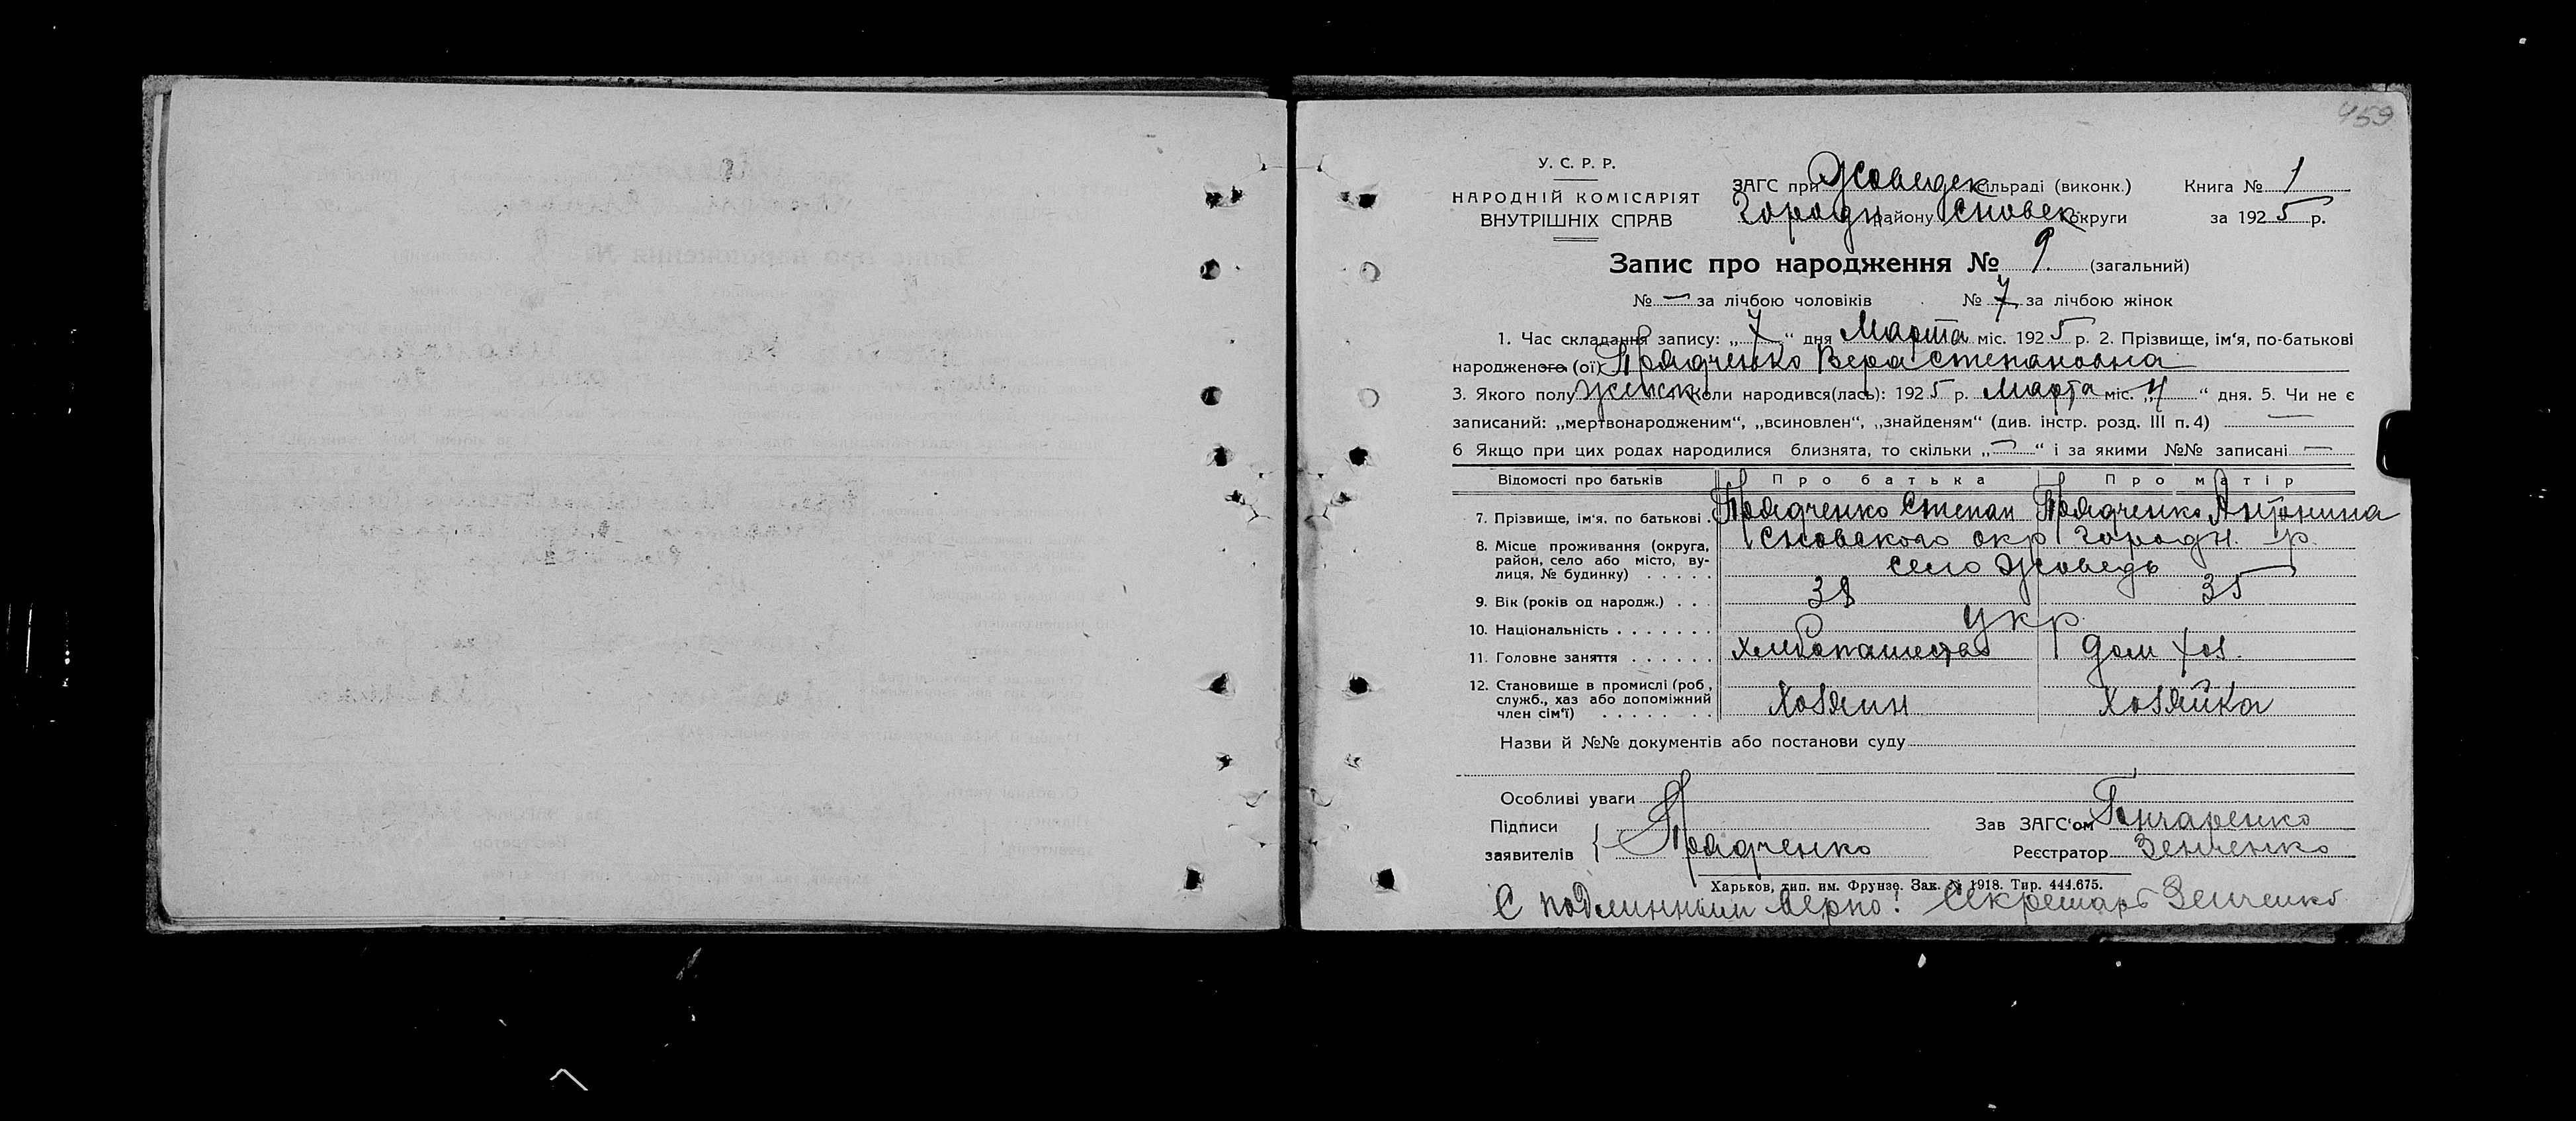 459
У. С. Р. Р.
НАРОДНІЙ КОМІСАРІЯТ
ВНУТРІШНІХ СПРАВ
ЗАГС при Жоведск сільраді (виконк.) Книга № 1
Городн району Сновск округи за 1925 р.
Запис про народження № 9 (загальний)
№ — за лічбою чоловіків № 7 за лічбою жінок
1. Час складання запису: „7“ дня Марта міс. 1925 р. 2. Прізвище, ім'я, по-батькові
народженого (ої) Прядченко Вера Степановна
3. Якого полу женск 4. Коли народився(лась): 1925 р. Марта міс. „4“ дня. 5. Чи не є
записаний: „мертвонародженим“, „всиновлен“, „знайденям“ (див. інстр. розд. III п. 4) —
6 Якщо при цих родах народилися близнята, то скільки „—“ і за якими №№ записані —
Відомості про батьків Про батька Про матір
7. Прізвище, ім'я, по батькові . Прядченко Степан Прядченко Антонина
8. Місце проживання (округа, район, село або місто, вулиця, № будинку) . . . . . Сновского окр Городн. р.
село Жоведь
9. Вік (років од народж.) . . . 38 35
10. Національність . . . . . . . укр.
11. Головне заняття . . . . . . Хлебопашество дом хоз.
12. Становище в промислі (роб, служб., хаз або допоміжний член сім'ї) . . . . . . . Хозяин Хозяйка
Назви й №№ документів або постанови суду
Особливі уваги
Підписи заявителів { Прядченко
Зав ЗАГС'ом Гончаренко
Реєстратор Зенченко
Харьков, тип. им. Фрунзе. Зак. № 1918. Тир. 444.675.
С подлинным верно! Секретарь Зенченко